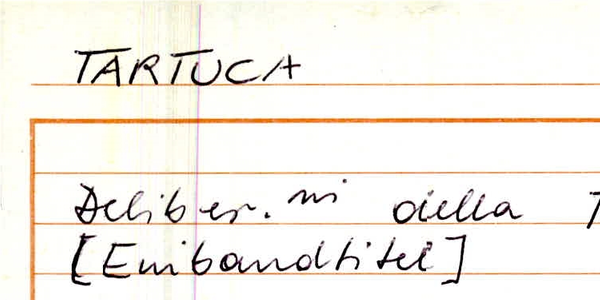 TARTUCA
Deliber.ni della T
[Einbandtitel]